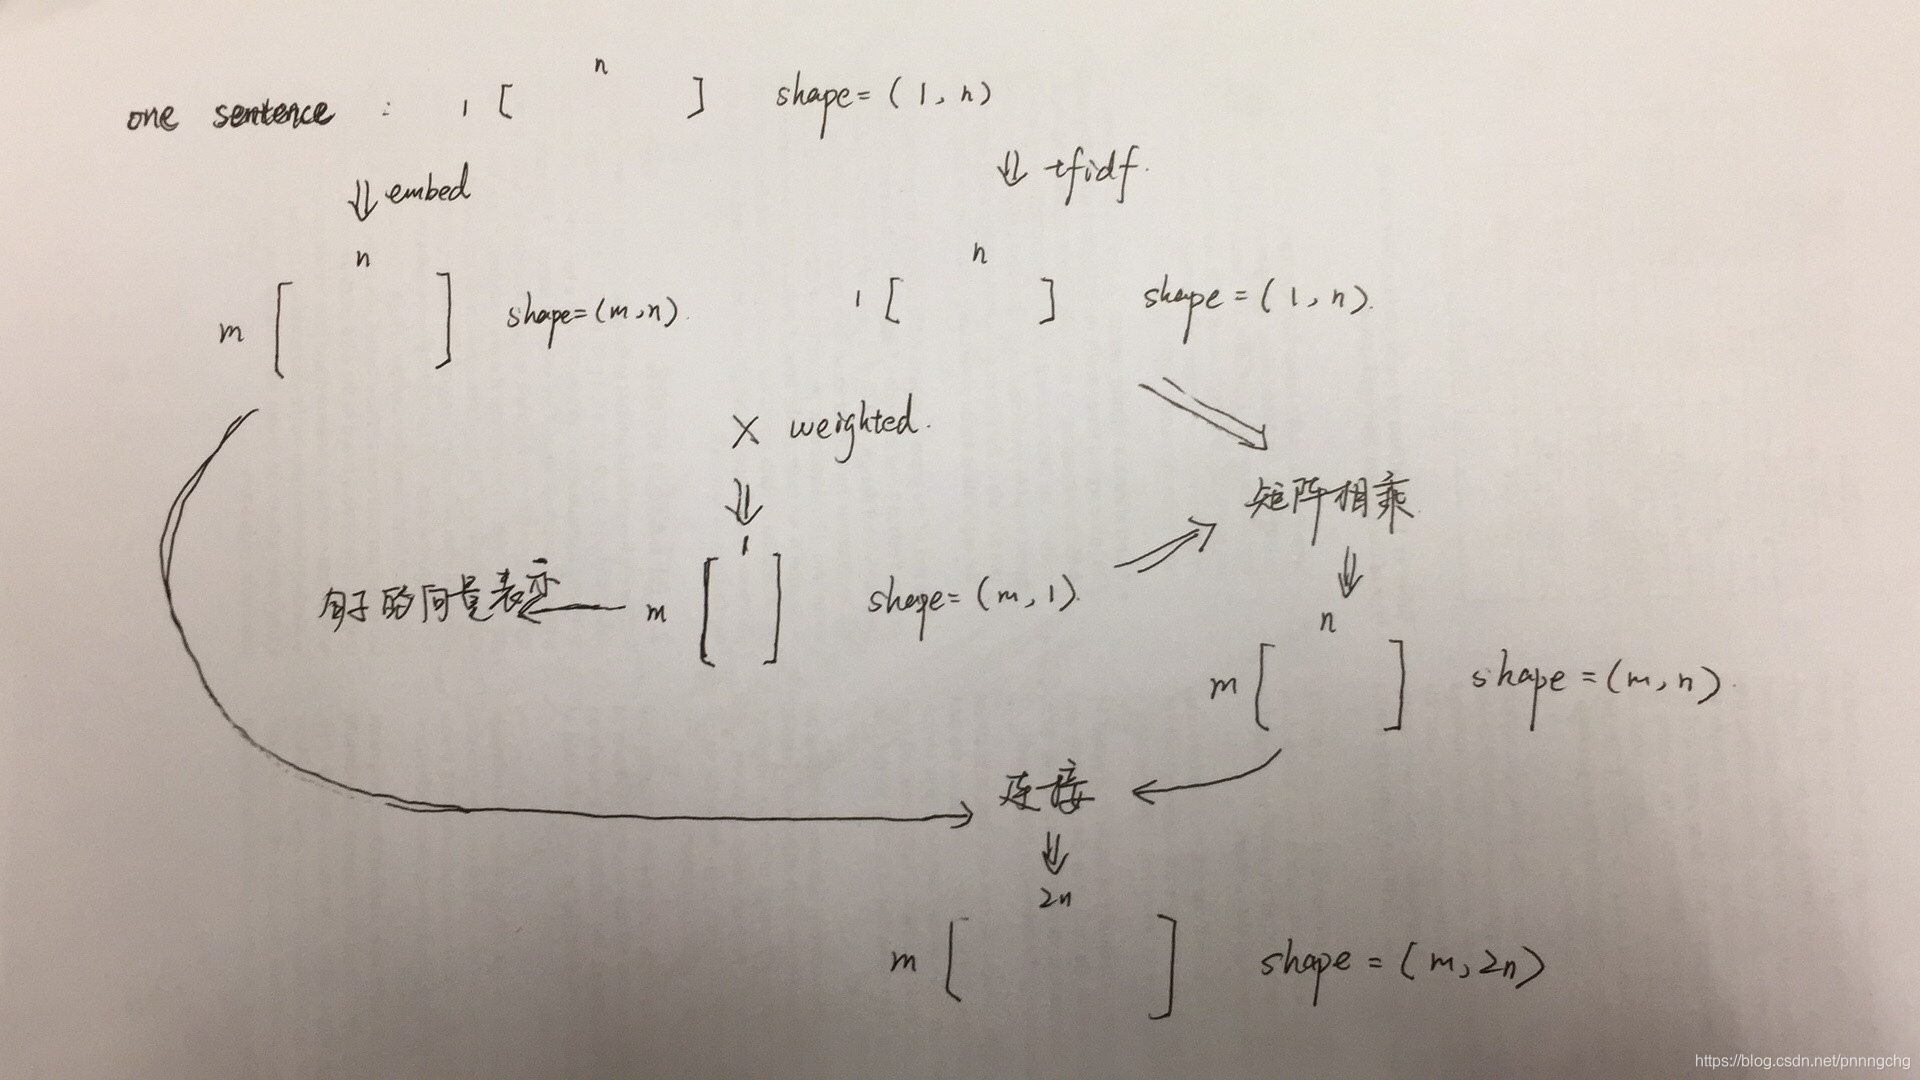 n
one sentence : 1 [ ] shape = (1, n)
⇓ embed
⇓ tfidf.
n
n
m [ ] shape = (m, n).
1 [ ] shape = (1, n).
× weighted.
矩阵相乘
⇓
1
句子的向量表示 ← m [ ] shape = (m, 1).
⇓
n
m [ ] shape = (m, n).
连接
⇓
2n
m [ ] shape = (m, 2n)
https://blog.csdn.net/pnnngchg